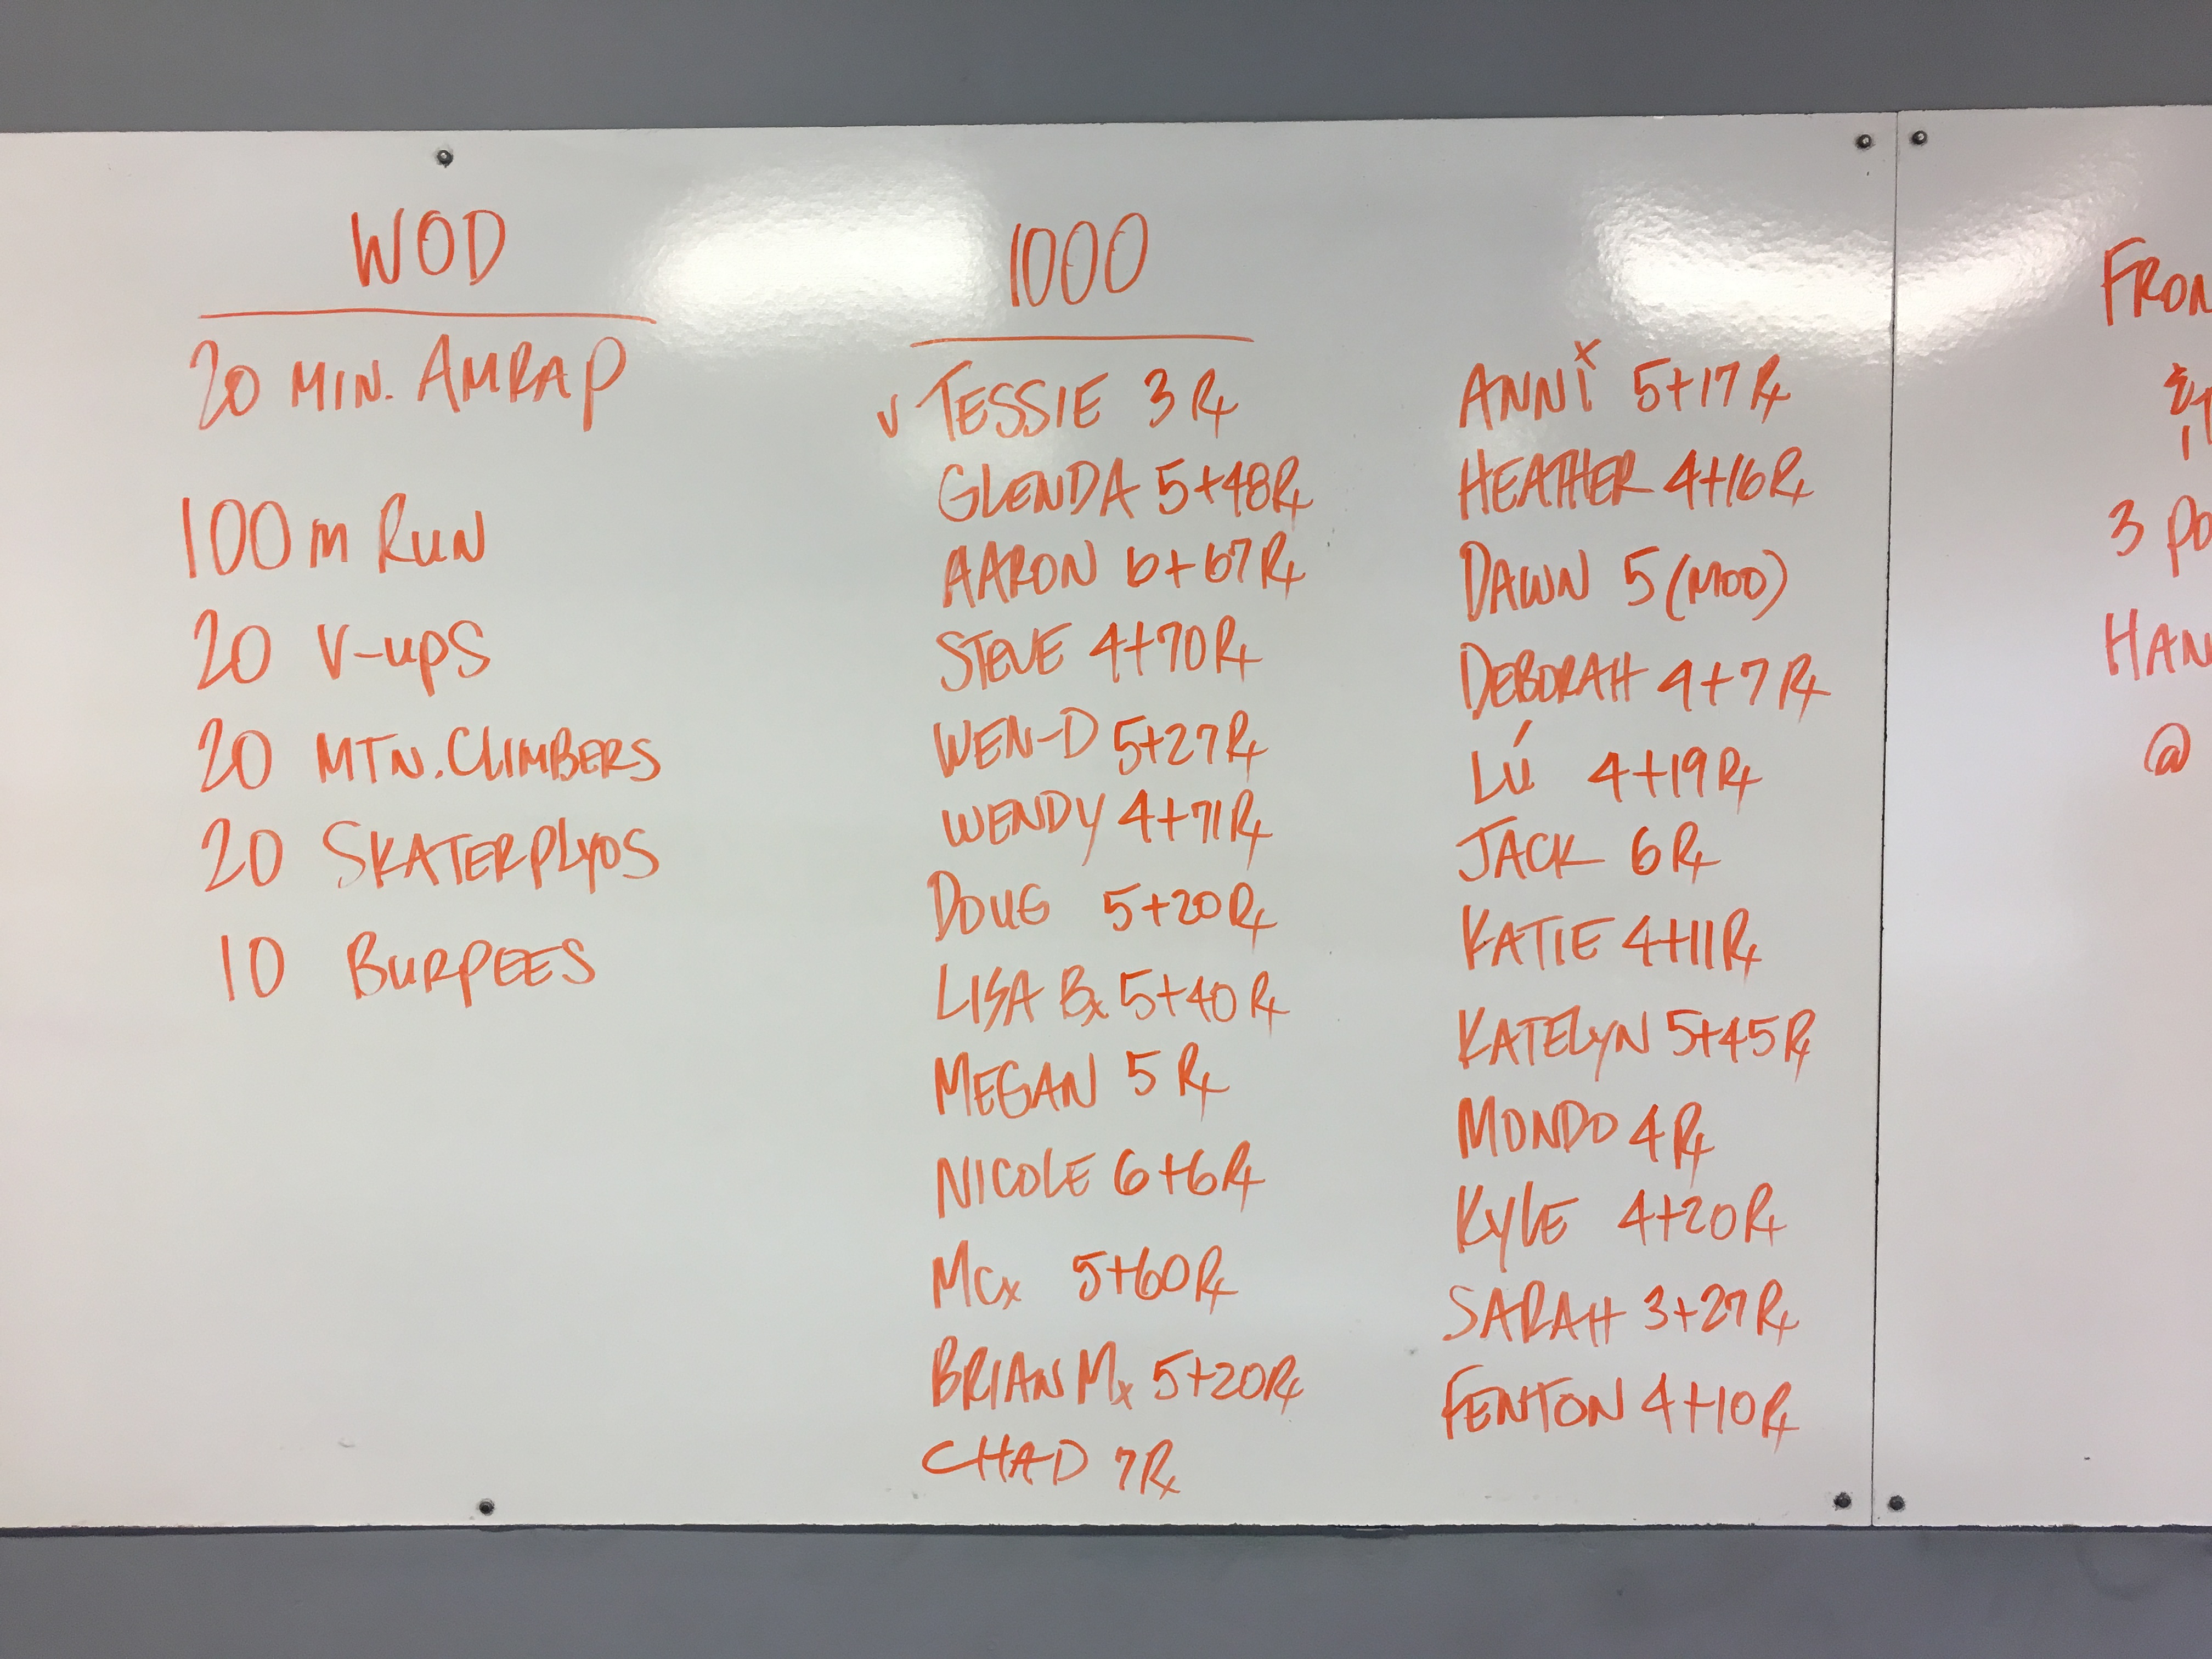 WOD
20 MIN. AMRAP
100m RUN
20 V-UPS
20 MTN. CLIMBERS
20 SKATERPLYOS
10 BURPEES
1000
✓ TESSIE 3 Rx
GLENDA 5+48 Rx
AARON 6+67 Rx
STEVE 4+70 Rx
WEN-D 5+27 Rx
WENDY 4+71 Rx
DOUG 5+20 Rx
LISA Bx 5+40 Rx
MEGAN 5 Rx
NICOLE 6+6 Rx
MCx 5+60 Rx
BRIAN Mx 5+20 Rx
CHAD 7 Rx
ANNi 5+17 Rx
HEATHER 4+16 Rx
DAWN 5 (MOD)
DEBORAH 4+7 Rx
LÚ 4+19 Rx
JACK 6 Rx
KATIE 4+11 Rx
KATELYN 5+45 Rx
MONDO 4 Rx
KYLE 4+20 Rx
SARAH 3+27 Rx
FENTON 4+10 Rx
FRON
3 PO
HAN
@